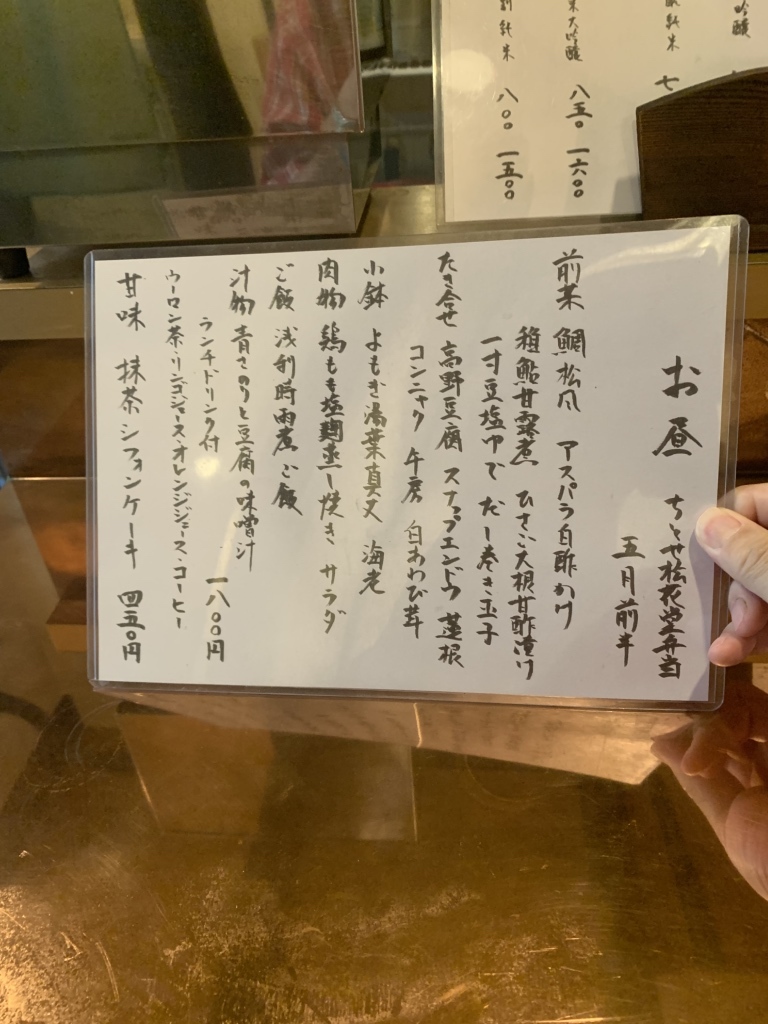 お昼 ちとせ松花堂弁当
五月前半
前菜 鯛松風 アスパラ白酢かけ
稚鮎甘露煮 ひさご大根甘酢漬け
一寸豆塩ゆで だし巻き玉子
たき合せ 高野豆腐 スナップエンドウ 蓮根
コンニャク 牛蒡 白あわび茸
小鉢 よもぎ湯葉真丈 海老
肉物 鶏もも塩麹蒸し焼き サラダ
ご飯 浅利時雨煮ご飯
汁物 青さのりと豆腐の味噌汁
一八〇〇円
ランチドリンク付
ウーロン茶・リンゴジュース・オレンジジュース・コーヒー
甘味 抹茶シフォンケーキ 四五〇円
吟醸
純米 七
米大吟醸 八五〇 一六〇〇
純米 八〇〇 一五〇〇